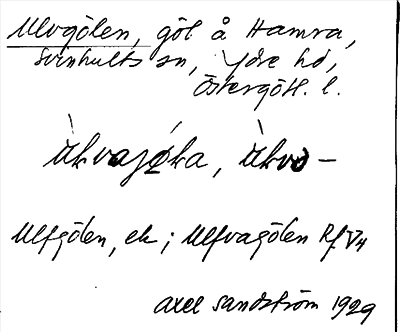 Ulvgölen, göl å Hamra,
Svinhults sn, Ydre hd,
Östergötl. l.
ùkvajǿka, ùkvo-
Ulfgölen, ek; Ulfvagölen Rf V4
Axel Sandström 1929